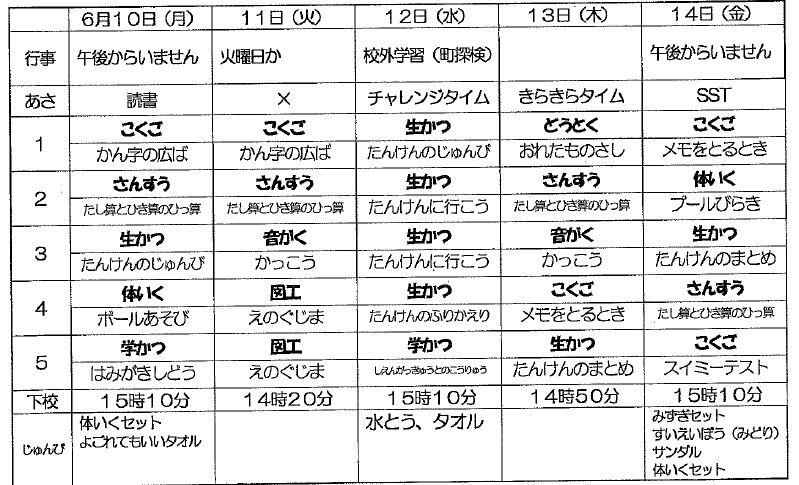 6月10日（月） 11日（火） 12日（水） 13日（木） 14日（金）
行事 午後からいません 火曜日か 校外学習（町探検） 午後からいません
あさ 読書 × チャレンジタイム きらきらタイム SST
1 こくご こくご 生かつ どうとく こくご
かん字の広ば かん字の広ば たんけんのじゅんび おれたものさし メモをとるとき
2 さんすう さんすう 生かつ さんすう 体いく
たし算とひき算のひっ算 たし算とひき算のひっ算 たんけんに行こう たし算とひき算のひっ算 プールびらき
3 生かつ 音がく 生かつ 音がく 生かつ
たんけんのじゅんび かっこう たんけんに行こう かっこう たんけんのまとめ
4 体いく 図工 生かつ こくご さんすう
ボールあそび えのぐじま たんけんのふりかえり メモをとるとき たし算とひき算のひっ算
5 学かつ 図工 学かつ 生かつ こくご
はみがきしどう えのぐじま しえんがっきゅうとのこうりゅう たんけんのまとめ スイミーテスト
下校 15時10分 14時20分 15時10分 14時50分 15時10分
じゅんび 体いくセット 水とう、タオル みずぎセット
よごれてもいいタオル すいえいぼう（みどり）
サンダル
体いくセット